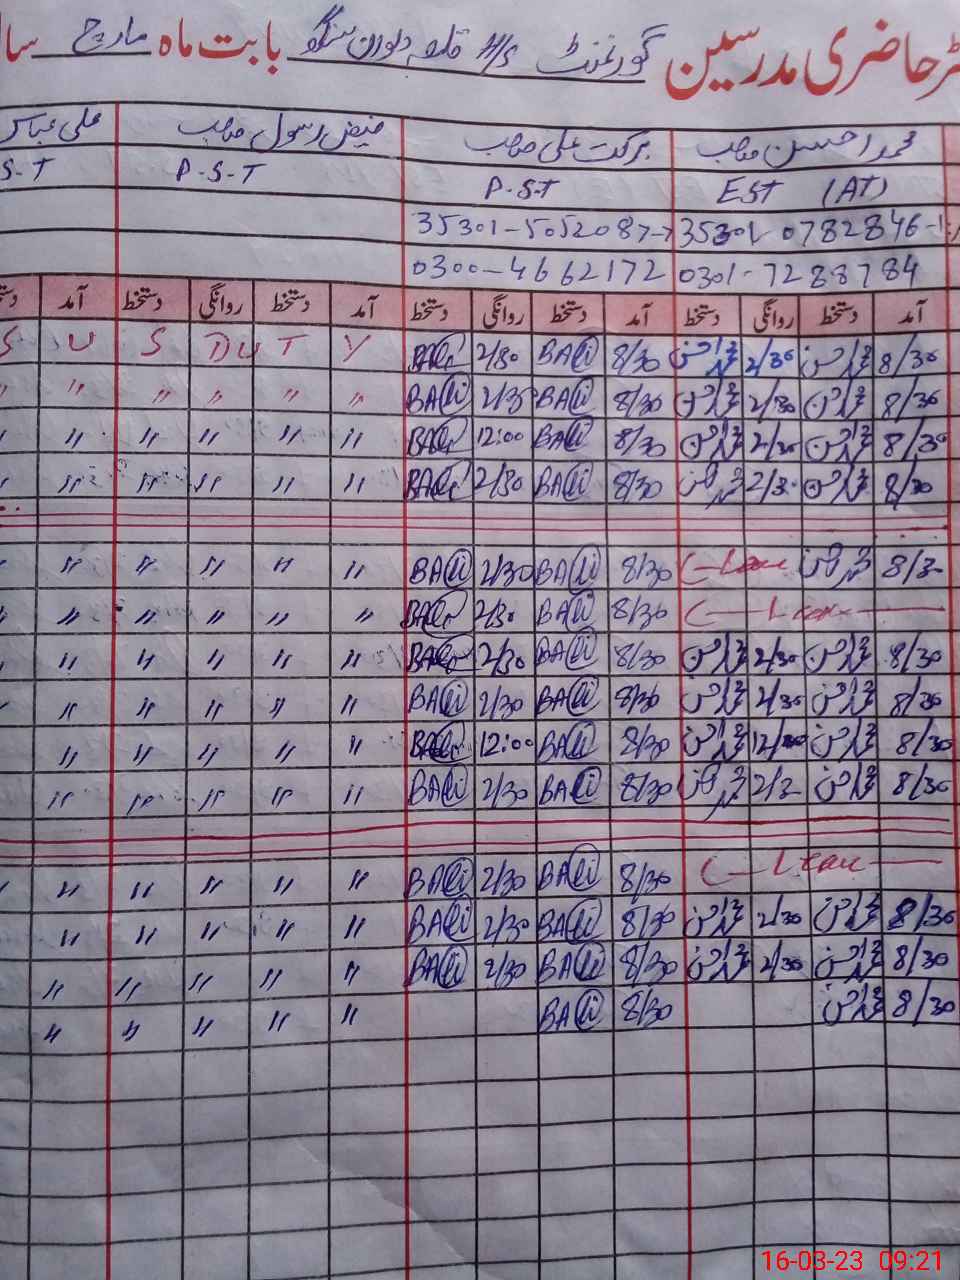 رجسٹر حاضری مدرسین گورنمنٹ H/S قلعہ دیوان سنگھ بابت ماہ مارچ سا
محمد احسن صاحب برکت علی صاحب فیض رسول صاحب علی عباس
EST (AT) P-S-T P-S-T S-T
35301-0782846-1 35301-5052087-7
0301-7288784 0300-4662172
آمد دستخط روانگی دستخط آمد دستخط روانگی دستخط آمد دستخط روانگی دستخط آمد دستخط
8/30 محمد احسن 2/30 محمد احسن 8/30 BAli 2/30 BAli S U S DUTY
8/30 محمد احسن 2/30 محمد احسن 8/30 BAli 2/30 BAli " " " " " "
8/30 محمد احسن 2/30 محمد احسن 8/30 BAli 12:00 BAli " " " " " "
8/30 محمد احسن 2/30 محمد احسن 8/30 BAli 2/30 BAli " " " " " "
8/30 محمد احسن Leave 8/30 BAli 2/30 BAli " " " " " "
Leave 8/30 BAli 2/30 BAli " " " " " "
8/30 محمد احسن 2/30 محمد احسن 8/30 BAli 2/30 BAli " " " " " "
8/30 محمد احسن 2/30 محمد احسن 8/30 BAli 2/30 BAli " " " " " "
8/30 محمد احسن 12/00 محمد احسن 8/30 BAli 12:00 BAli " " " " " "
8/30 محمد احسن 2/30 محمد احسن 8/30 BAli 2/30 BAli " " " " " "
Leave 8/30 BAli 2/30 BAli " " " " " "
8/30 محمد احسن 2/30 محمد احسن 8/30 BAli 2/30 BAli " " " " " "
8/30 محمد احسن 2/30 محمد احسن 8/30 BAli 2/30 BAli " " " " " "
8/30 محمد احسن 8/30 BAli " " " " " "
16-03-23 09:21